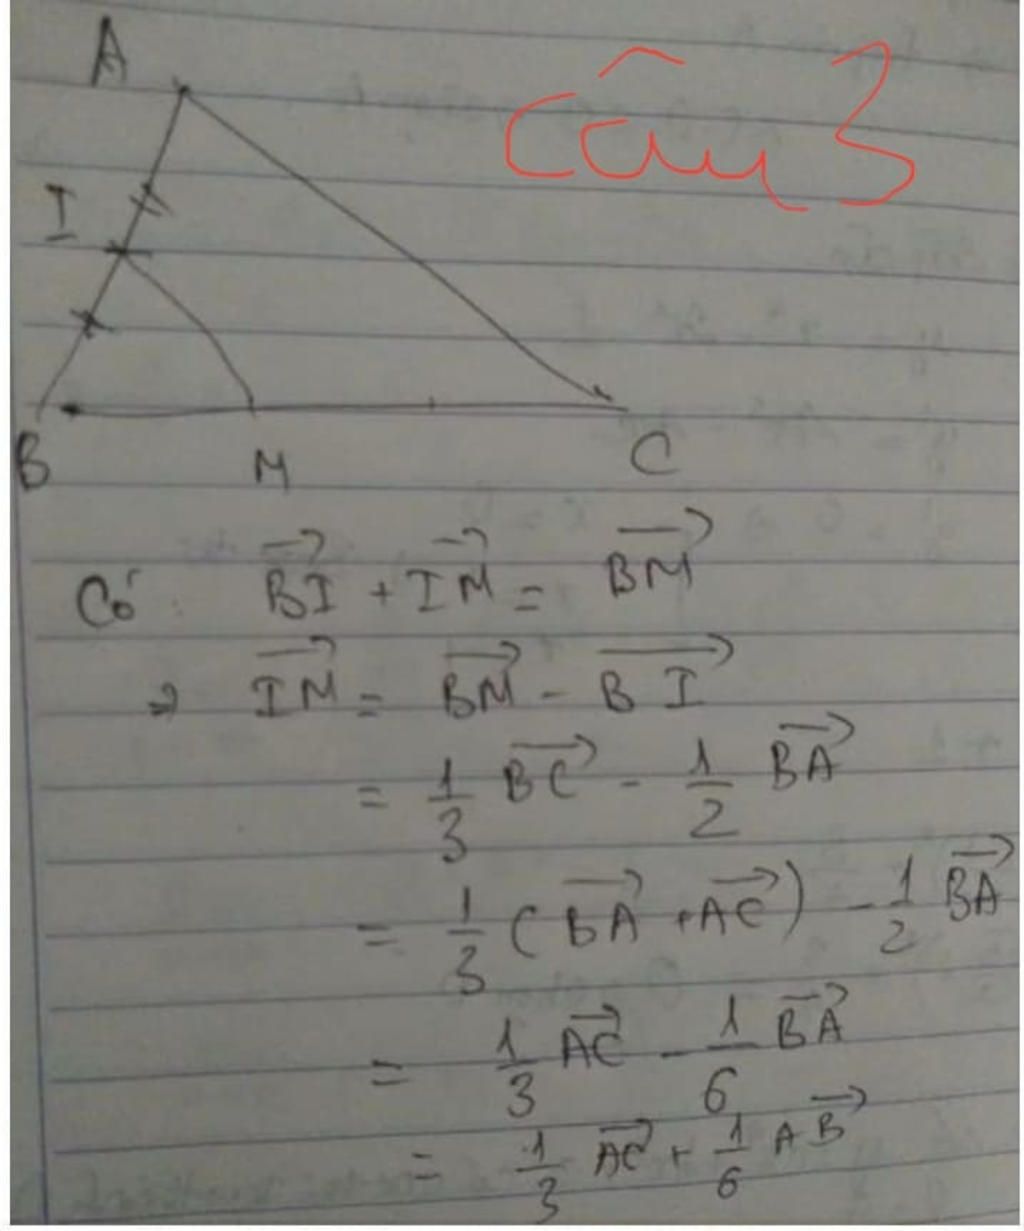 câu 3
A
I
B M C
Có: $\overrightarrow{BI} + \overrightarrow{IM} = \overrightarrow{BM}$
⇒ $\overrightarrow{IM} = \overrightarrow{BM} - \overrightarrow{BI}$
$= \frac{1}{3} \overrightarrow{BC} - \frac{1}{2} \overrightarrow{BA}$
$= \frac{1}{3} (\overrightarrow{BA} + \overrightarrow{AC}) - \frac{1}{2} \overrightarrow{BA}$
$= \frac{1}{3} \overrightarrow{AC} - \frac{1}{6} \overrightarrow{BA}$
$= \frac{1}{3} \overrightarrow{AC} + \frac{1}{6} \overrightarrow{AB}$